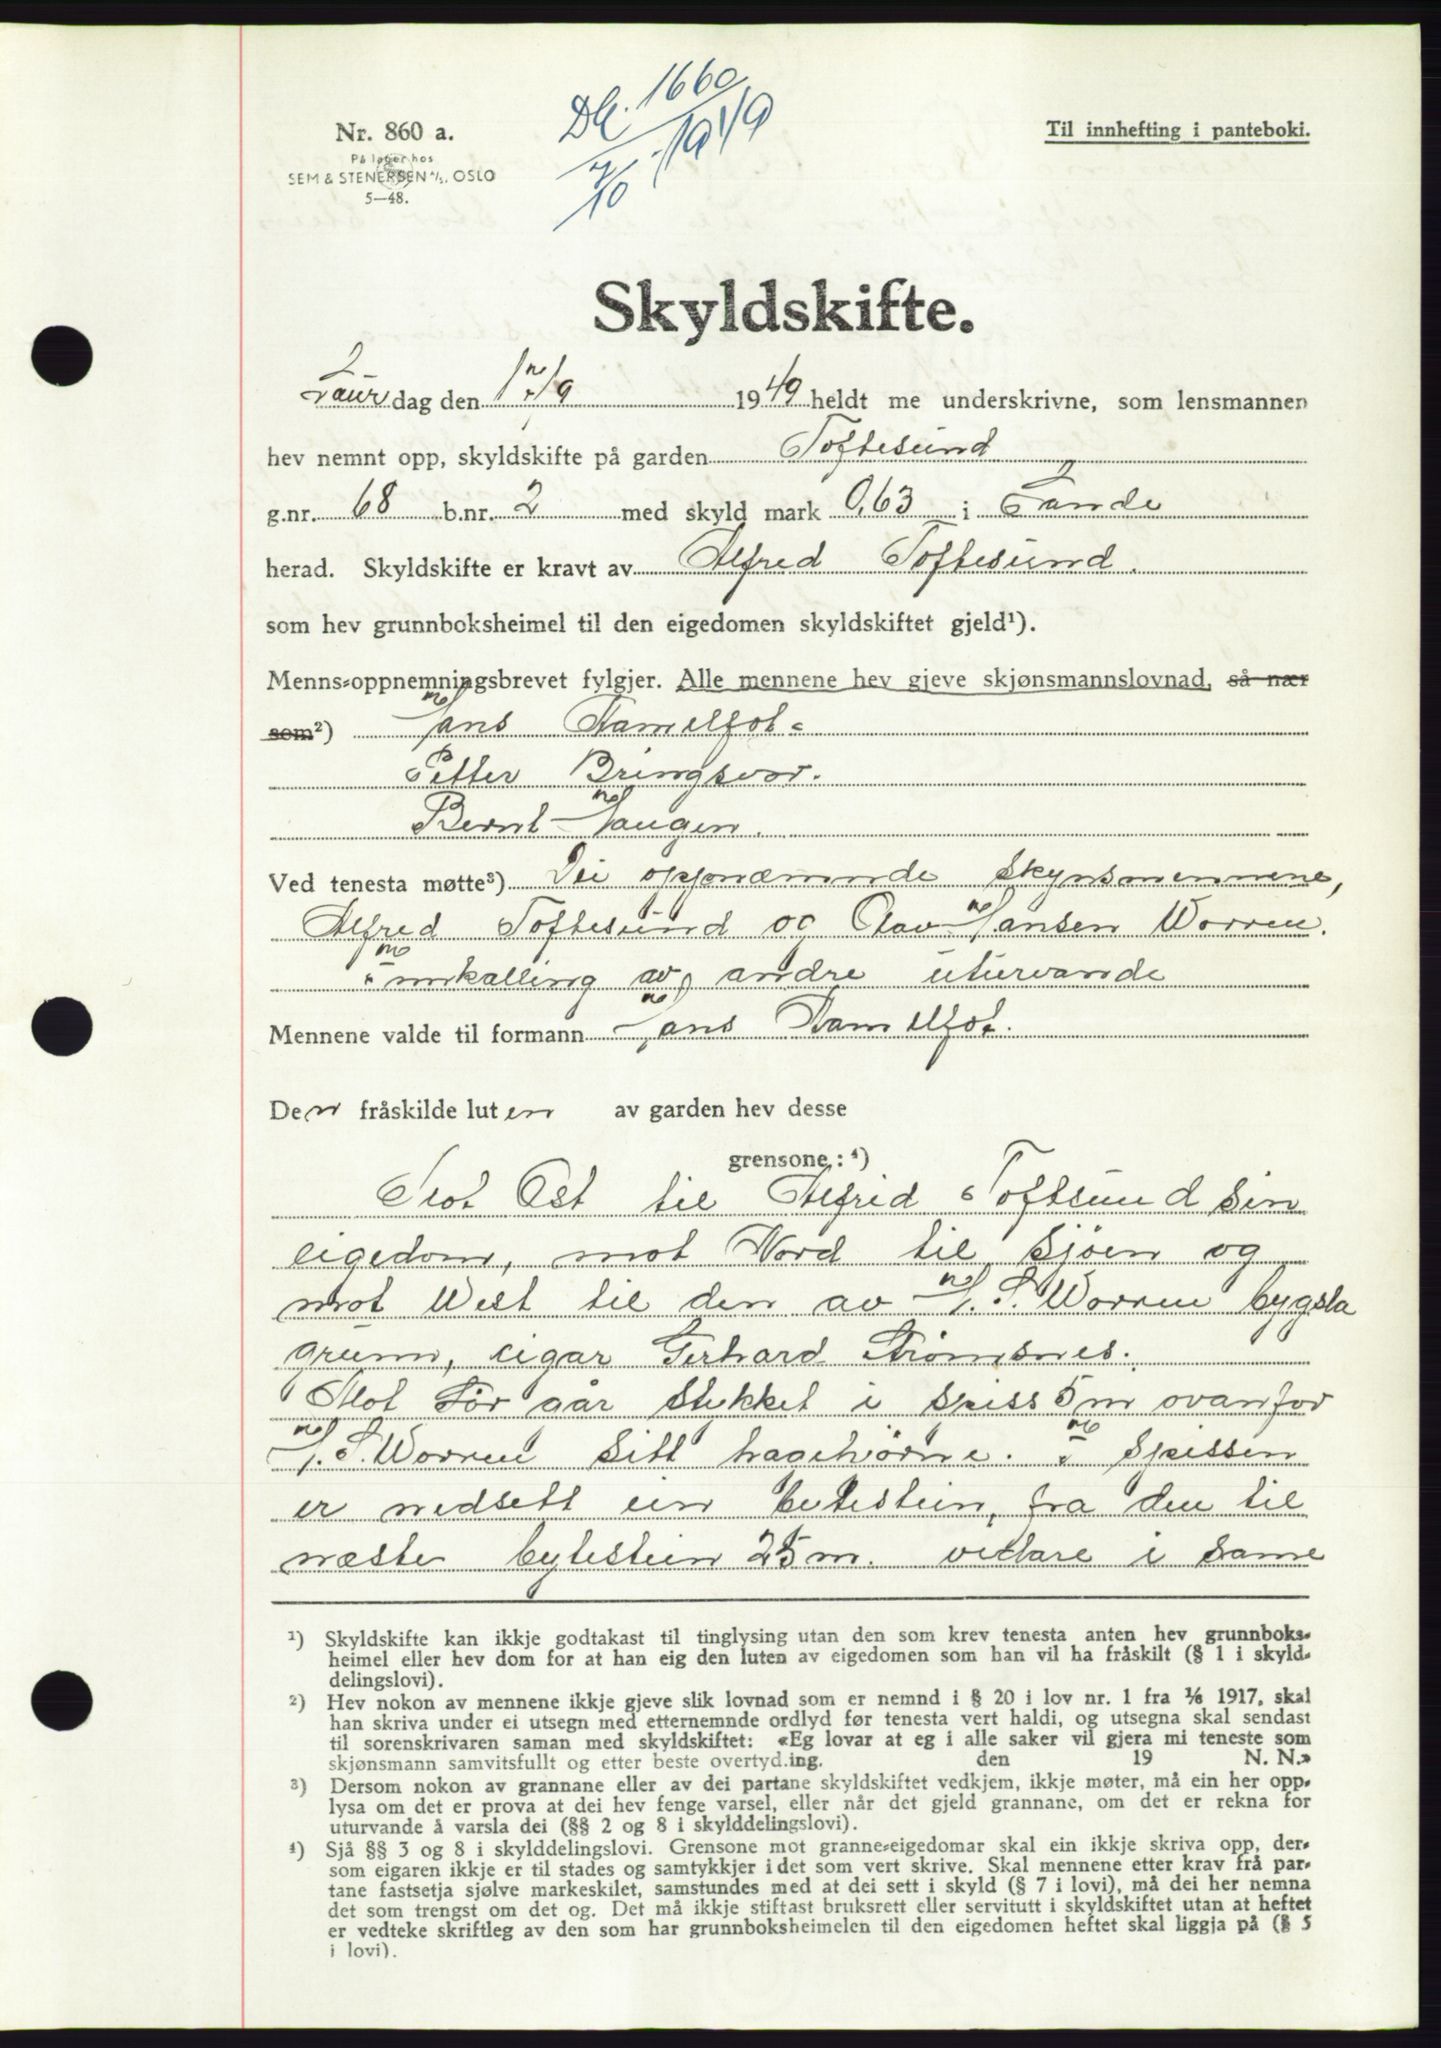 Dk. 1660
7/10 - 1949
Nr. 860 a.
Til innhefting i panteboki.
På lager hos
SEM & STENERSEN A/S, OSLO
5—48.
Skyldskifte.
Laurdag den 17/9 1949 heldt me underskrivne, som lensmannen
hev nemnt opp, skyldskifte på garden Toftesund
g.nr. 68 b.nr. 2 med skyld mark 0,63 i Sande
herad. Skyldskifte er kravt av Alfred Toftesund.
som hev grunnboksheimel til den eigedomen skyldskiftet gjeld¹).
Menns-oppnemningsbrevet fylgjer. Alle mennene hev gjeve skjønsmannslovnad, så nær
som²) Hans Hamelfot
Petter Bringsvor.
Bernt Haugen.
Ved tenesta møtte³) Dei oppnæmnde skynsmennene,
Alfred Toftesund og Olav Hansen Worren.
Innkalling av andre uturvande
Mennene valde til formann Hans Hamelfot.
Den fråskilde luten av garden hev desse
grensone: ⁴)
Mot Øst til Alfrid Toftsund sin
eigedom, mot Nord til Sjöen og
mot West til den av H. S. Worren bygsla
grunn, eigar Gerhard Strømsnes.
Mot Sör går stykket i spiss 5 m ovanfor
H. S. Worren sitt hagehörne. I spissen
er nedsett ein bytestein, fra den til
næste bytestein 25 m. vidare i same
¹) Skyldskifte kan ikkje godtakast til tinglysing utan den som krev tenesta anten hev grunnboks-
heimel eller hev dom for at han eig den luten av eigedomen som han vil ha fråskilt (§ 1 i skyld-
delingslovi).
²) Hev nokon av mennene ikkje gjeve slik lovnad som er nemnd i § 20 i lov nr. 1 fra 1/6 1917, skal
han skriva under ei utsegn med etternemnde ordlyd før tenesta vert haldi, og utsegna skal sendast
til sorenskrivaren saman med skyldskiftet: «Eg lovar at eg i alle saker vil gjera mi teneste som
skjønsmann samvitsfullt og etter beste overtyd.ing. den 19 N. N.»
³) Dersom nokon av grannane eller av dei partane skyldskiftet vedkjem, ikkje møter, må ein her opp-
lysa om det er prova at dei hev fenge varsel, eller når det gjeld grannane, om det er rekna for
uturvande å varsla dei (§§ 2 og 8 i skylddelingslovi).
⁴) Sjå §§ 3 og 8 i skylddelingslovi. Grensone mot granne-eigedomar skal ein ikkje skriva opp, der-
som eigaren ikkje er til stades og samtykkjer i det som vert skrive. Skal mennene etter krav frå par-
tane fastsetja sjølve markeskilet, samstundes med at dei sett i skyld (§ 7 i lovi), må dei her nemna
det som trengst om det og. Det må ikkje stiftast bruksrett eller servitutt i skyldskiftet utan at heftet
er vedteke skriftleg av den som har grunnboksheimelen til den eigedomen heftet skal liggja på (§ 5
i lovi).